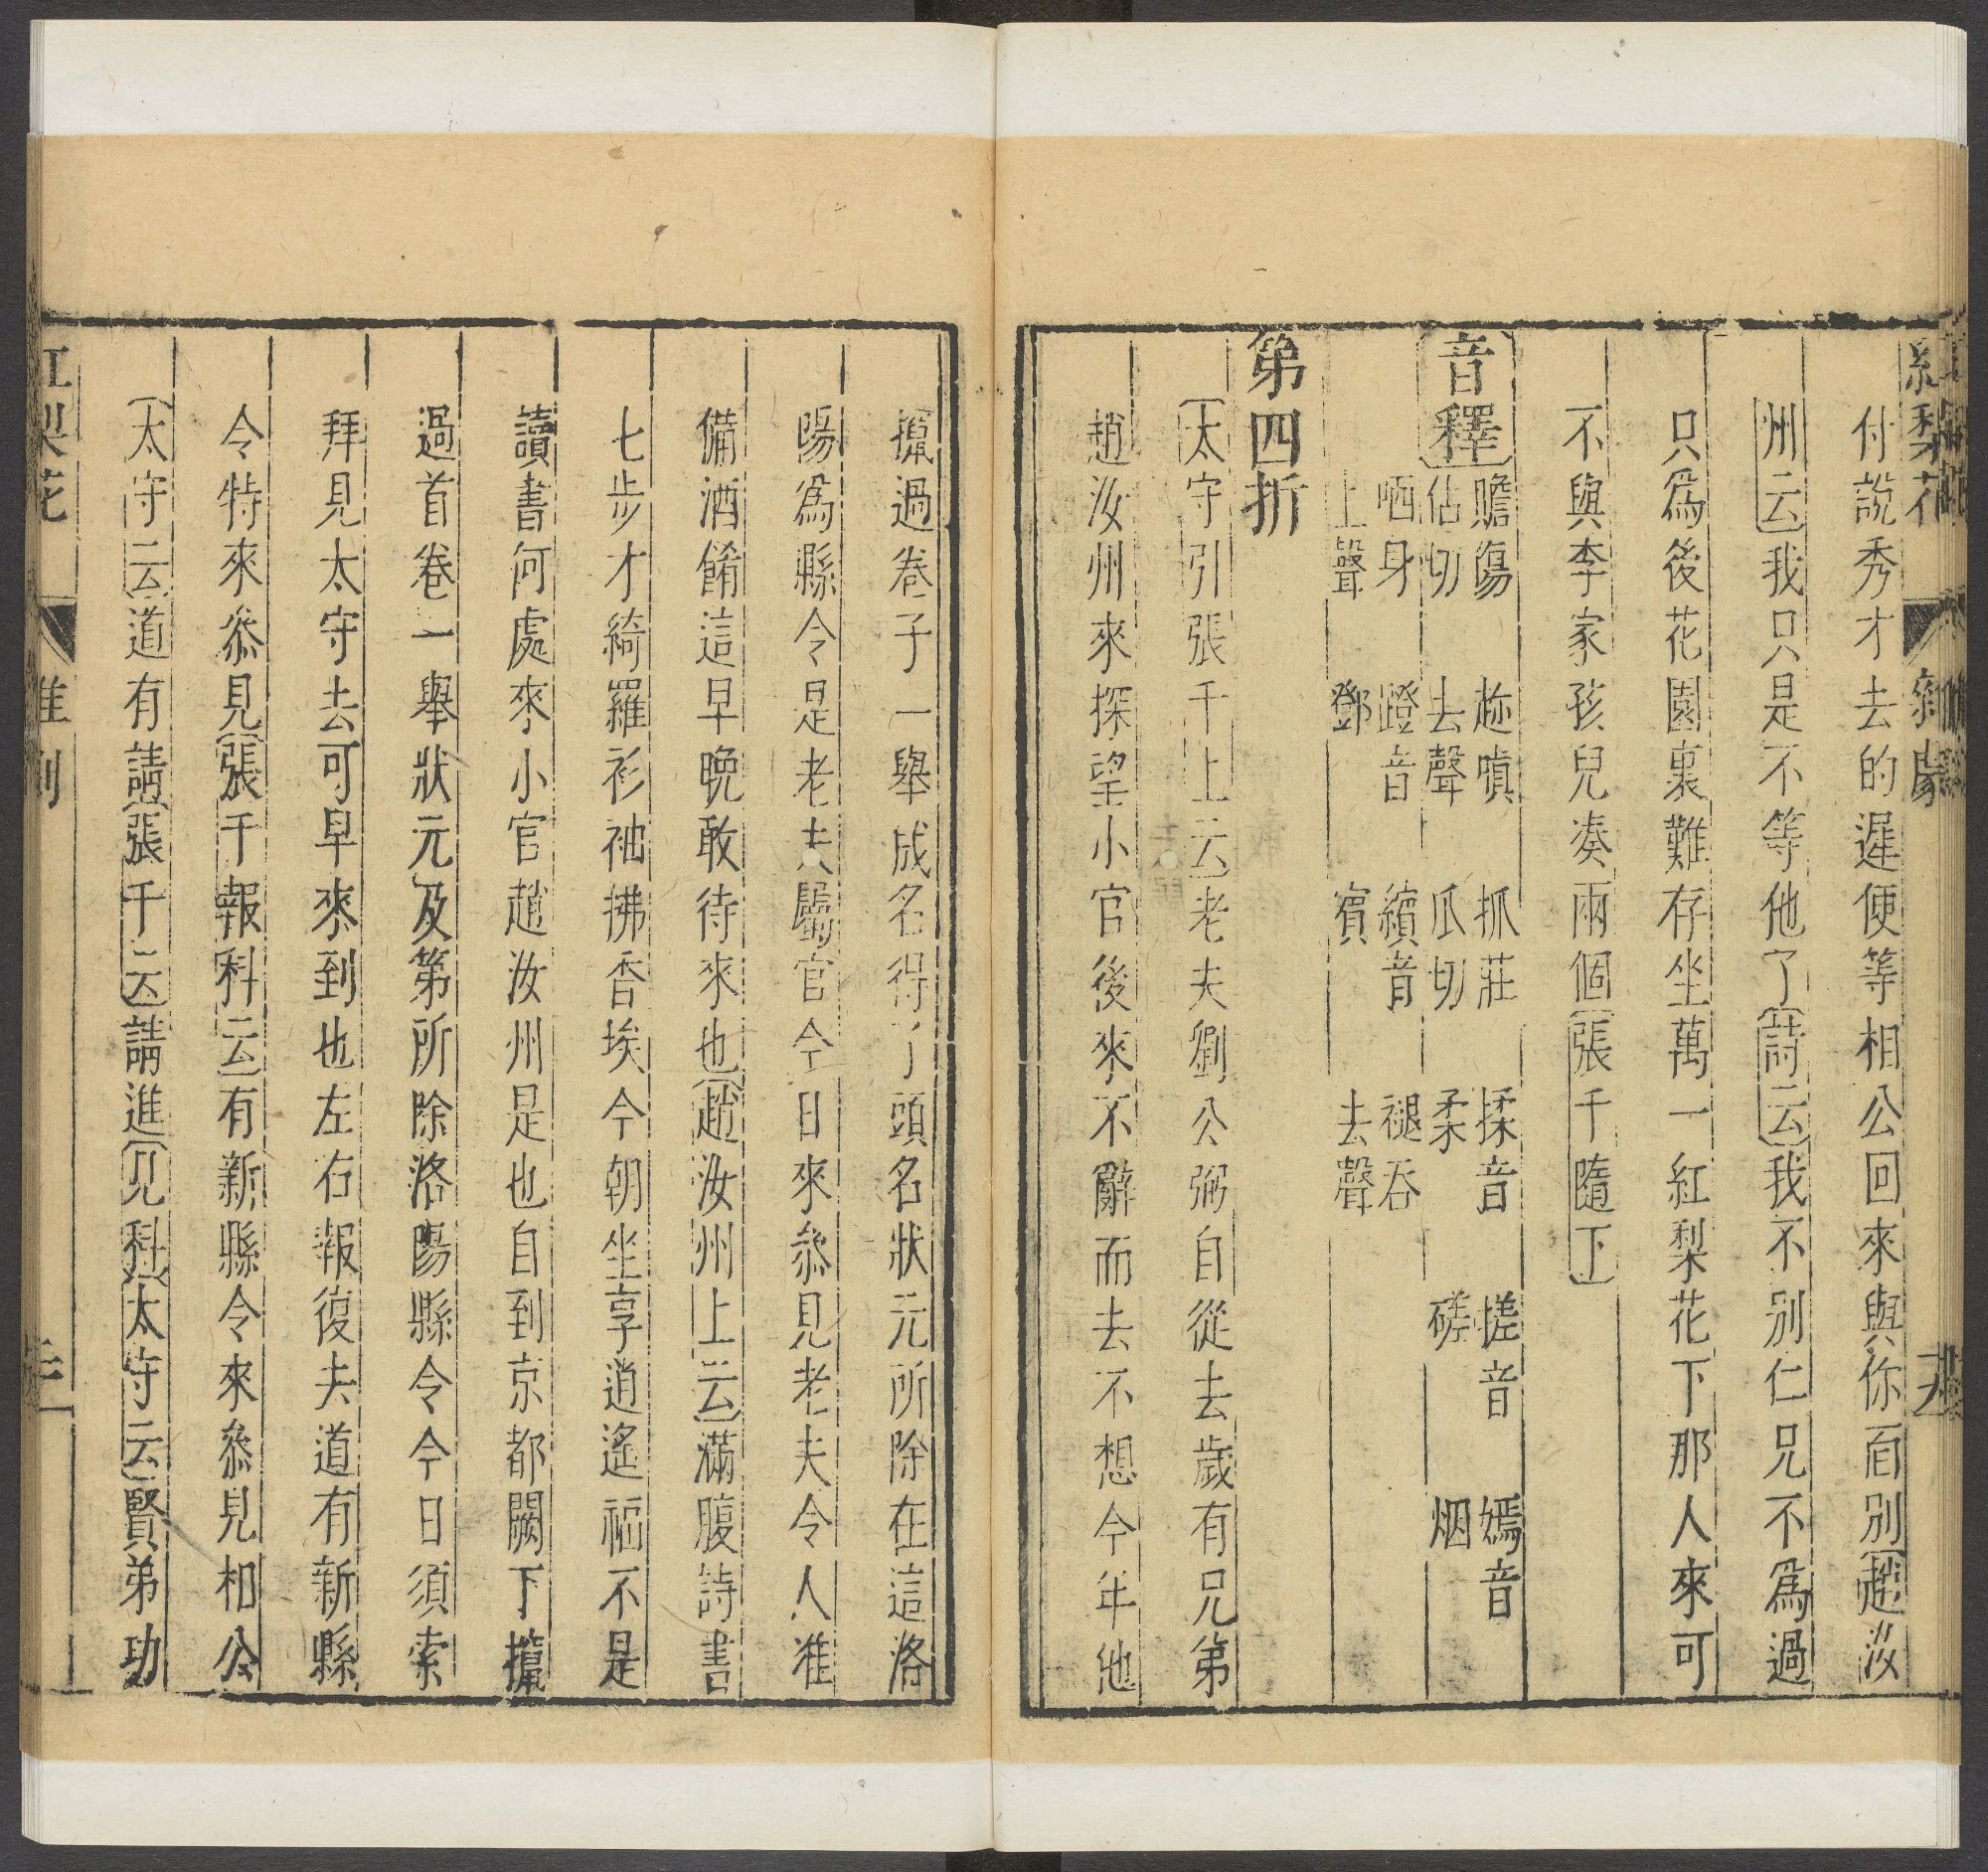 紅梨花　雜劇
付說秀才去的遲便等相公回來與你面別〔趙汝
州云〕我只是不等他了〔詩云〕我不別仁兄不爲過
只爲後花園裏難存坐萬一紅梨花下那人來可
不與李家孩兒凑兩個〔張千隨下〕
〔音釋〕
贍傷佔切　趂嗔去聲　抓莊瓜切　揉音柔　搓音磋　嫣音烟
哂身上聲　蹬音鄧　繽音賓　褪吞去聲
第四折
〔太守引張千上云〕老夫劉公弼自從去歲有兄弟
趙汝州來探望小官後來不辭而去不想今年他
攛過卷子一舉成名得了頭名狀元所除在這洛
陽爲縣令是老夫屬官今日來叅見老夫令人准
備酒餚這早晚敢待來也〔趙汝州上云〕滿腹詩書
七步才綺羅衫袖拂香埃今朝坐享逍遙福不是
讀書何處來小官趙汝州是也自到京都闕下攛
過首卷一舉狀元及第所除洛陽縣令今日須索
拜見太守去可早來到也左右報復去道有新縣
令特來叅見〔張千報科云〕有新縣令來叅見相公
〔太守云〕道有請〔張千云〕請進〔見科〕〔太守云〕賢弟功
紅梨花